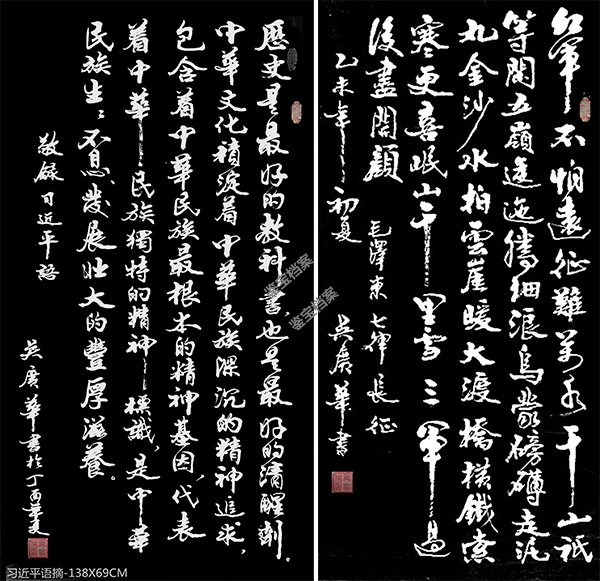 歷史是最好的教科書，也是最好的清醒劑。
中華文化積淀着中華民族深沉的精神追求，
包含着中華民族最根本的精神基因，代表
着中華民族獨特的精神標識，是中華
民族生生不息、發展壯大的豐厚滋養。
敬錄习近平語
吴廣華書於丁酉華夏
习近平语摘-138X69CM
紅軍不怕遠征難萬水千山祇
等閑五嶺逶迤騰細浪烏蒙磅礴走泥
丸金沙水拍雲崖暖大渡橋橫鐵索
寒更喜岷山千里雪三軍過
後盡開顏
毛澤東七律長征
乙未年初夏
吴廣華書
鉴宝档案
鉴宝档案